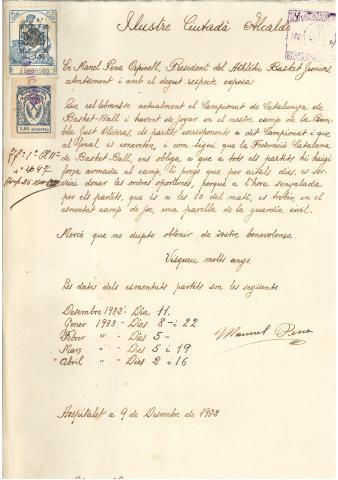 Ilustre Ciutadà Alcalde
En Manel Pena Espinell, President del Athlètic Basket Juniors,
atentament i amb el degut respecte exposa:
Que celebrantse actualment el Campionat de Catalunya de
Basket-Ball i havent de jogar en el nostre camp de la Rambla
Just Oliveras, els partits corresponents a dit Campionat i que
al final es concreten, i com sigui que la Federació Catalana
de Basket-Ball, ens obliga a que a tots els partits hi haigi
força armada al camp. Li prega que per aitals dies, es servirà
donar les ordres oportunes, perquè a l'hora senyalada
per els partits, que és a les 10 del matí, es trobin en el
esmentat camp de joc, una parella de la guardia civil.
Mercè que no dupto obtenir de vostre benevolensa.
Visqueu molts anys
Les dates dels esmentats partits son les següents
Desembre 1932 - Dia 11.
Gener 1933 - Dies 8 - i 22
Febrer " - Dies 5 -
Març " - Dies 5 i 19
Abril " - Dies 2 i 16
Manuel Pena
Hospitalet a 9 de Desembre de 1932